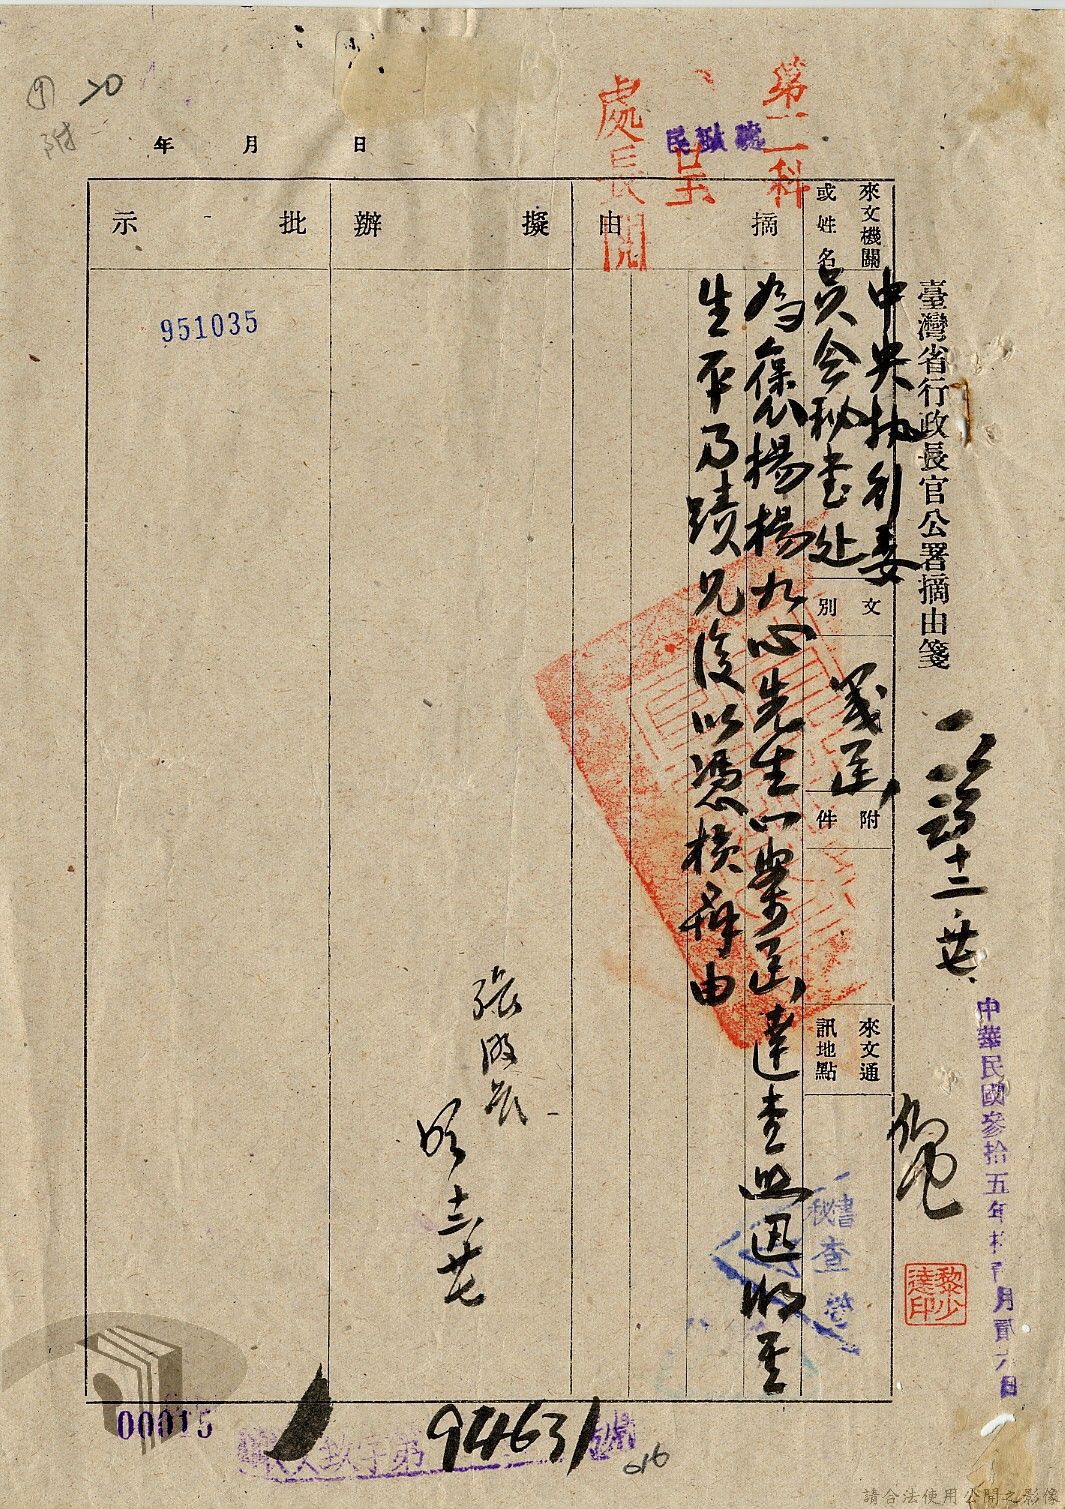 臺灣省行政長官公署摘由箋
年 月 日
來文機關
或姓名
中央執行委
員會秘書处
文別
箋函
附件
來文通
訊地點
摘由
為褒揚楊九心先生一案函達查照迅将其
生平乃蹟見復以憑核辦由
擬辦
批示
第二科
呈
處長閱
中華民國參拾五年拾月貳六日
黎少達印
秘書
查
十二
廿
951035
00015
94631
016
請合法使用公開之影像